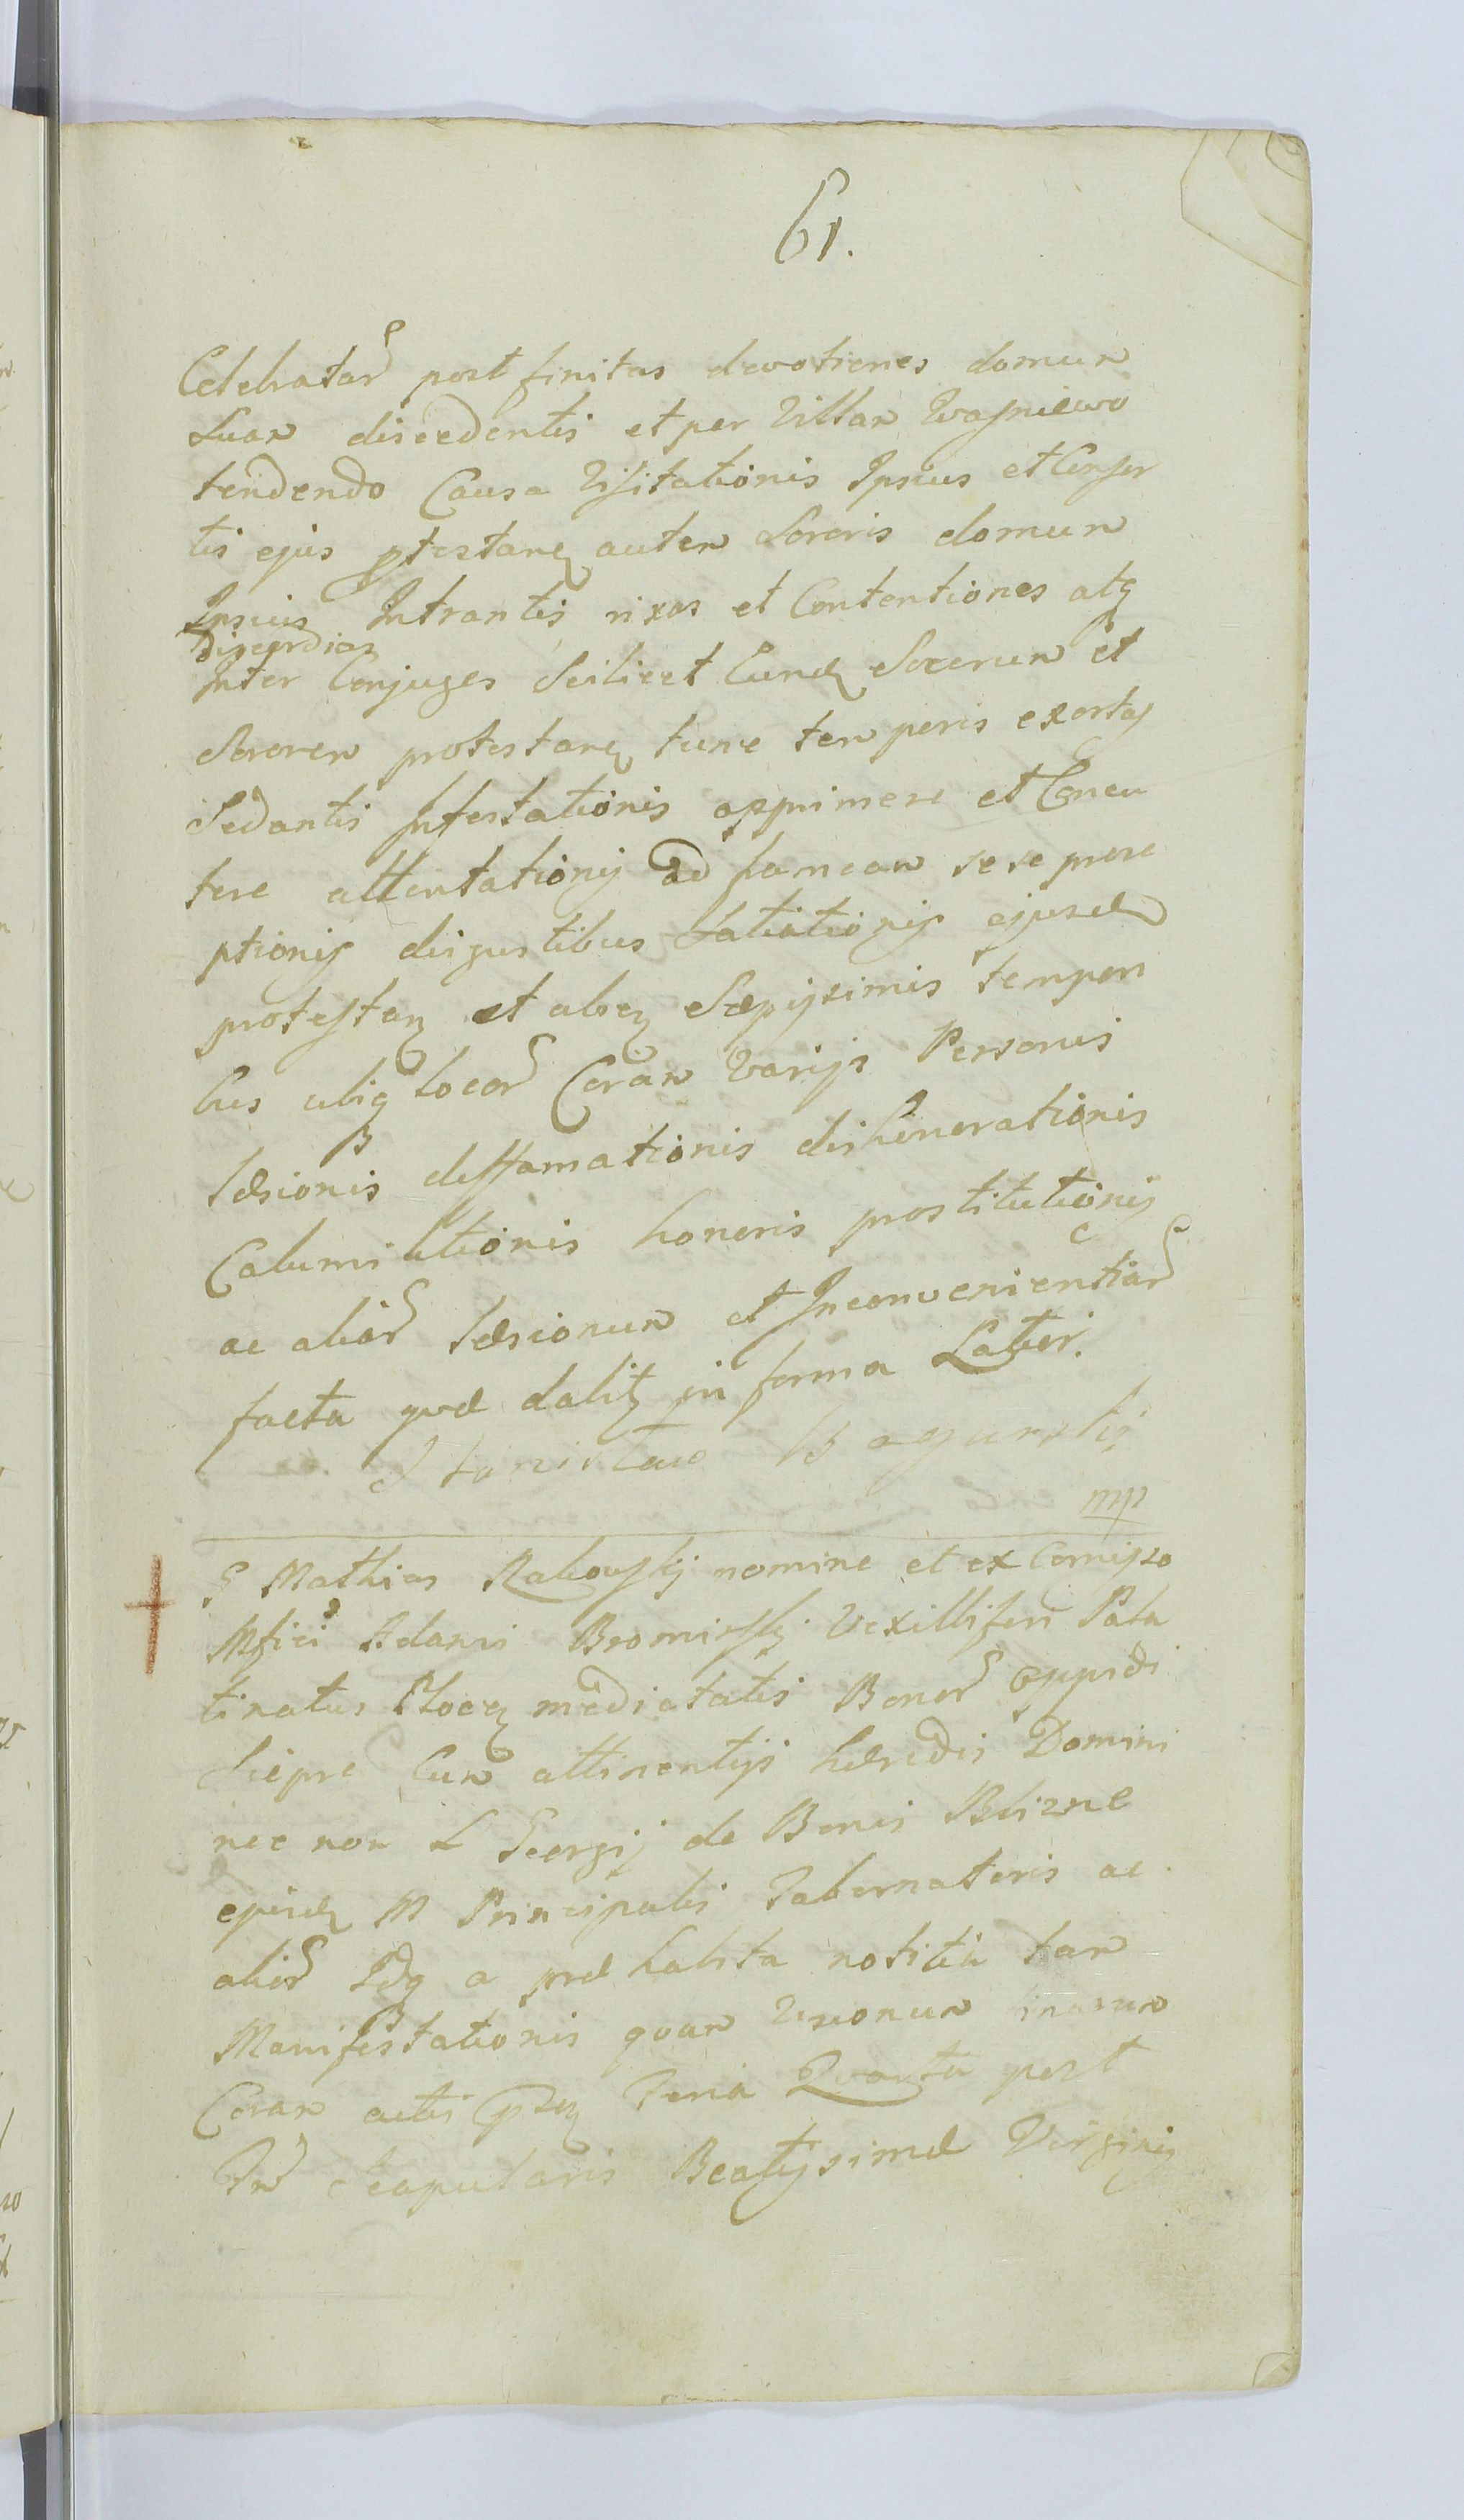 61.
Celebratar post finitas devotiones domum
Suam discedentis et per Villam Wasniewo
tendendo Causa Visitationis Ipsius et Consor
tis ejus ptestanq autem Sororis domum
Ipsius Intrantis rixas et Contentiones atq
discordias
Inter Conjuges Scilicet Eundq Socerum et
Sororem protestanq tunc temporis exortas
Sedantis Infestationis opprimere et Concu
tere attentationis ad frameam sese prore
ptionis disgustibus Satiationis ejusdem
protestanq et alsq Sæpissimis tempori
bus ubiq locor Coram Varijs Personis
læsionis deffamationis dishonorationis
Calumniationis honoris prostitutionis
ac alior læsionum et Inconvenientiar
facta quæ dabitq in forma Latiori.
Stanisław Bagunskij
mp
G Mathias Rakowskj nomine et ex Comisso
Mfici Adami Bromirskj Vexilliferi Pala
tinatus Plocq medietatis Bonor oppidi
Siepre Cum attinentijs hæredis Domini
nec non L Georgij de Bonis Blizne
ejusdq M Principalis Gubernatoris ac
alior Idq a præhabita notitia tam
Manifestationis quam Visionum
Coram actis psq Feria Quarta post
Fm Scapularis Beatissimæ Virginis